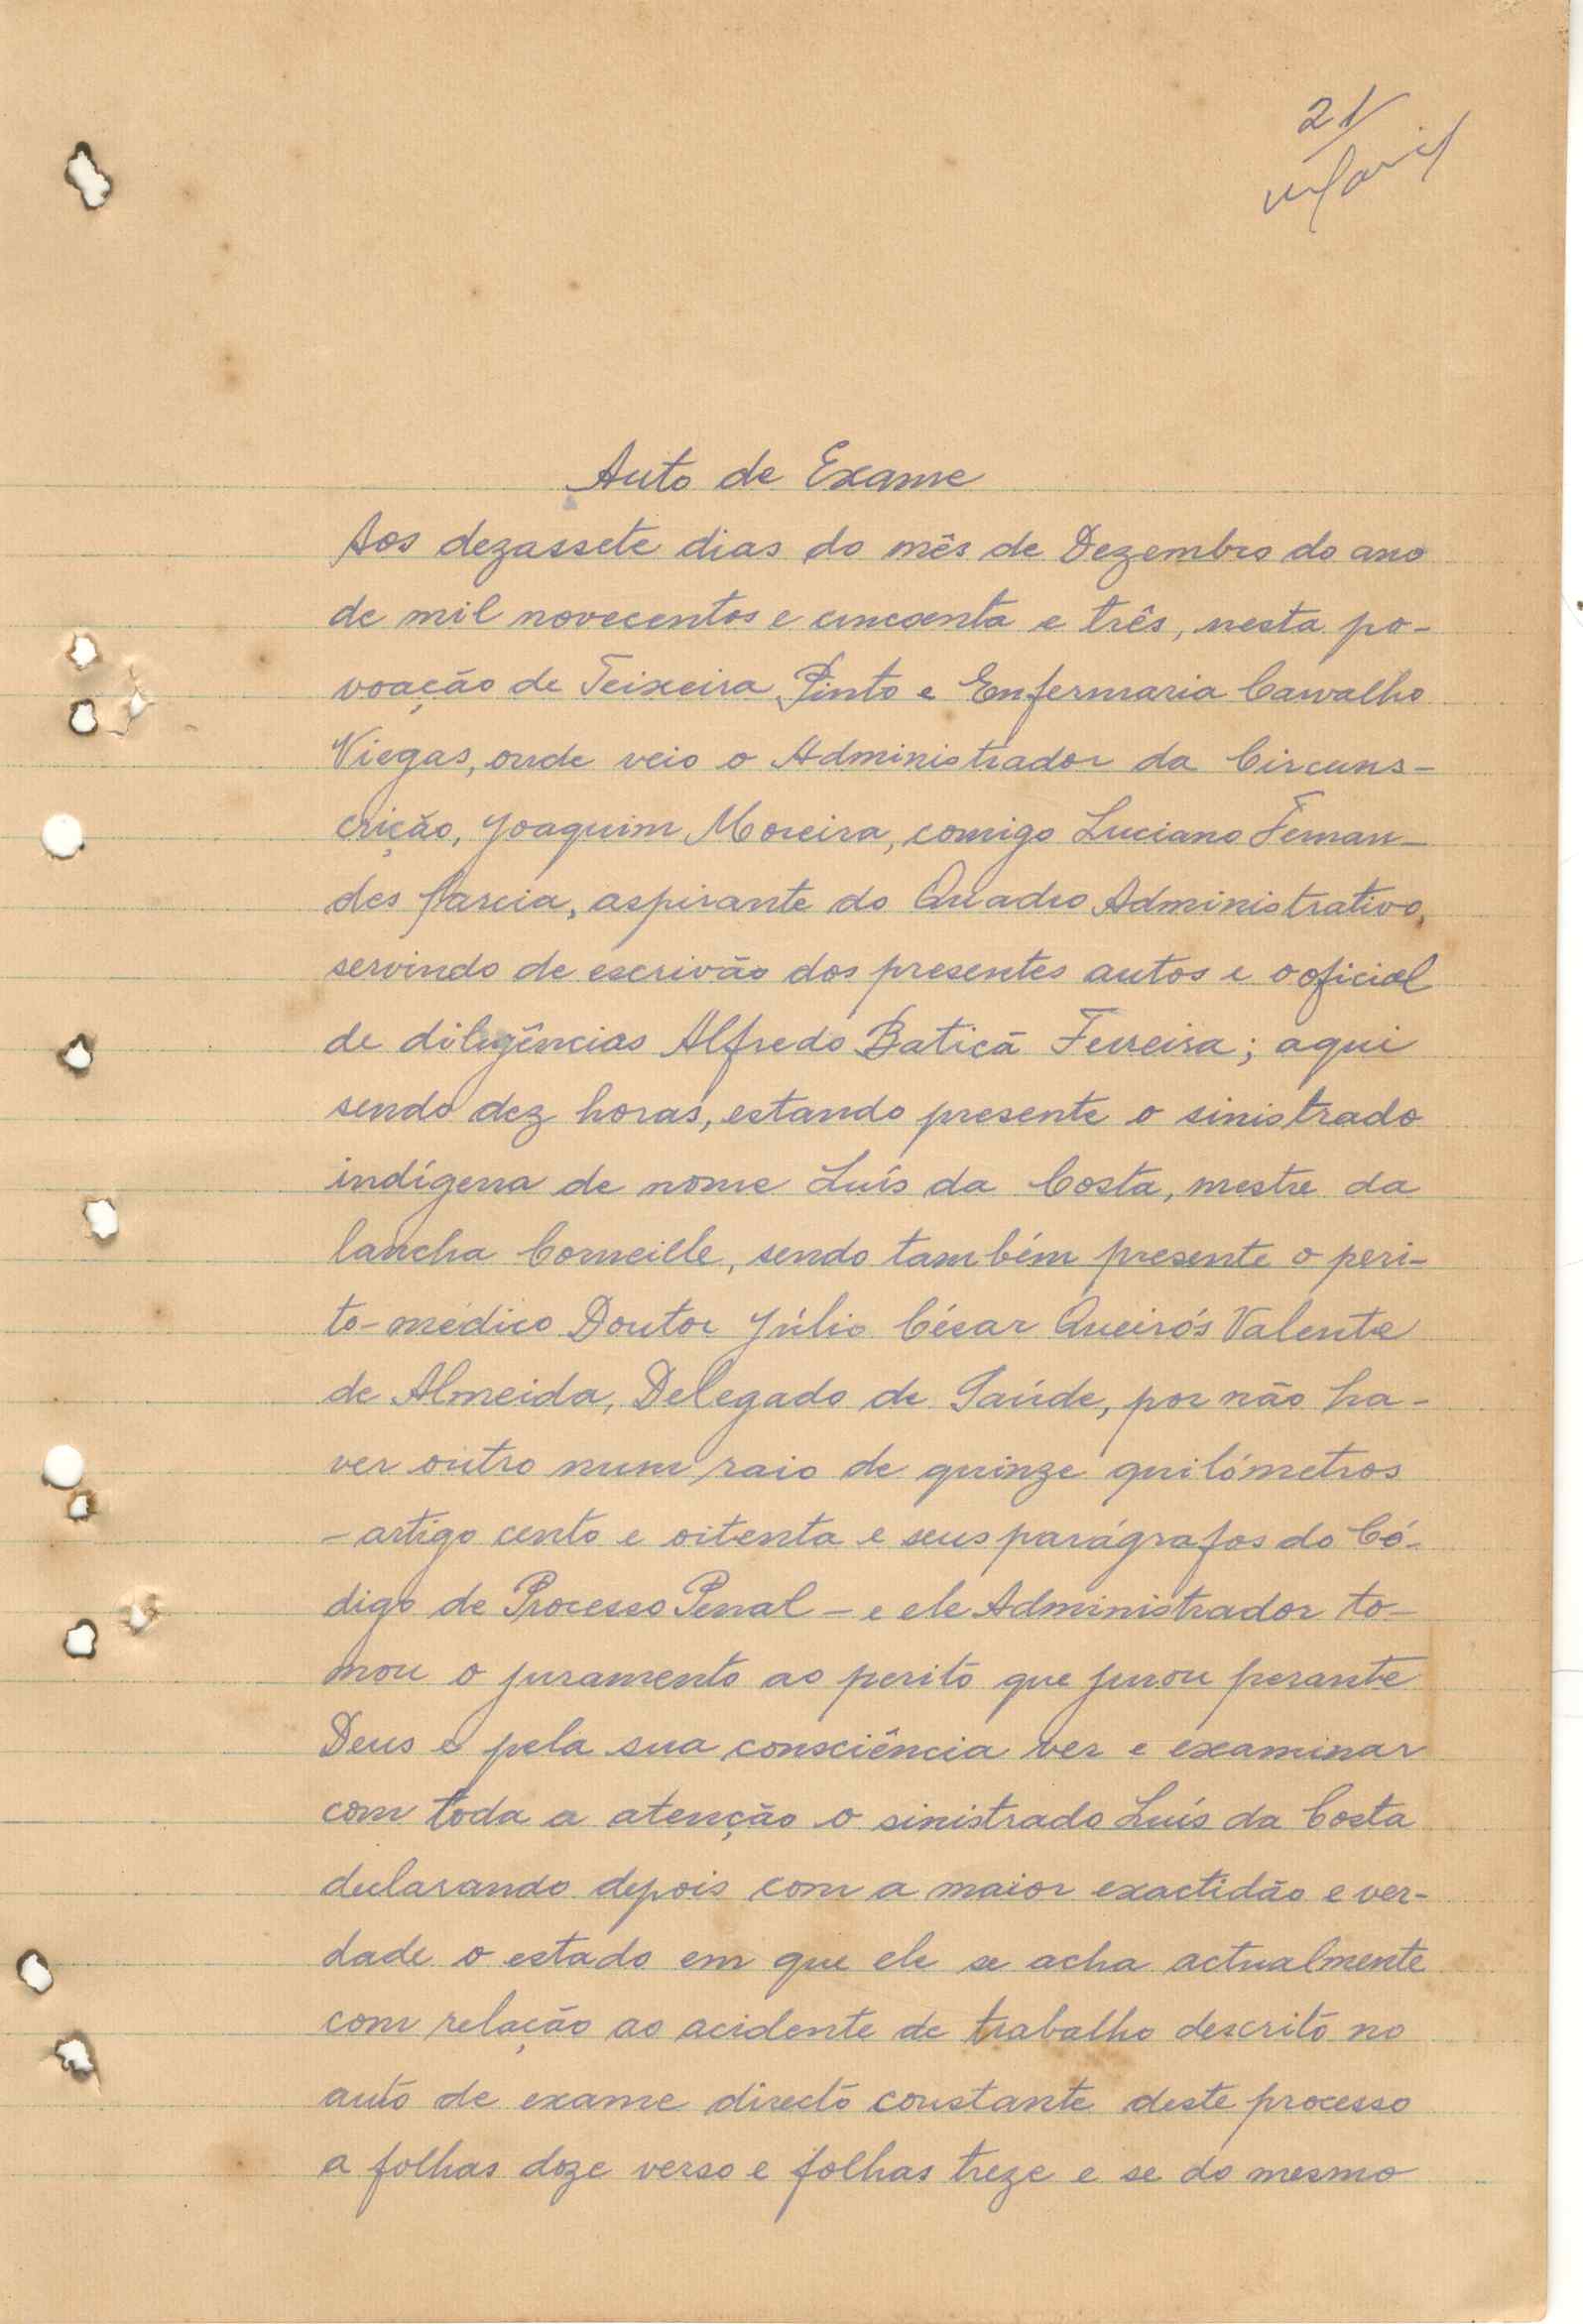 21
Auto de Exame
Aos dezassete dias do mês de Dezembro do ano
de mil novecentos e cincoenta e três, nesta po-
voação de Teixeira Pinto e Enfermaria Carvalho
Viegas, onde veio o Administrador da Circuns-
crição, Joaquim Moreira, comigo Luciano Fernan-
des Garcia, aspirante do Quadro Administrativo,
servindo de escrivão dos presentes autos e o oficial
de diligências Alfredo Baticã Ferreira; aqui
sendo dez horas, estando presente o sinistrado
indígena de nome Luís da Costa, mestre da
lancha Corneille, sendo também presente o peri-
to-médico Doutor Júlio César Queirós Valente
de Almeida, Delegado de Saúde, por não ha-
ver outro num raio de quinze quilómetros
- artigo cento e oitenta e seus parágrafos do Có-
digo de Processo Penal - e ele Administrador to-
mou o juramento ao perito que jurou perante
Deus e pela sua consciência ver e examinar
com toda a atenção o sinistrado Luís da Costa
declarando depois com a maior exactidão e ver-
dade o estado em que ele se acha actualmente
com relação ao acidente de trabalho descrito no
auto de exame directo constante deste processo
a folhas doze verso e folhas treze e se do mesmo